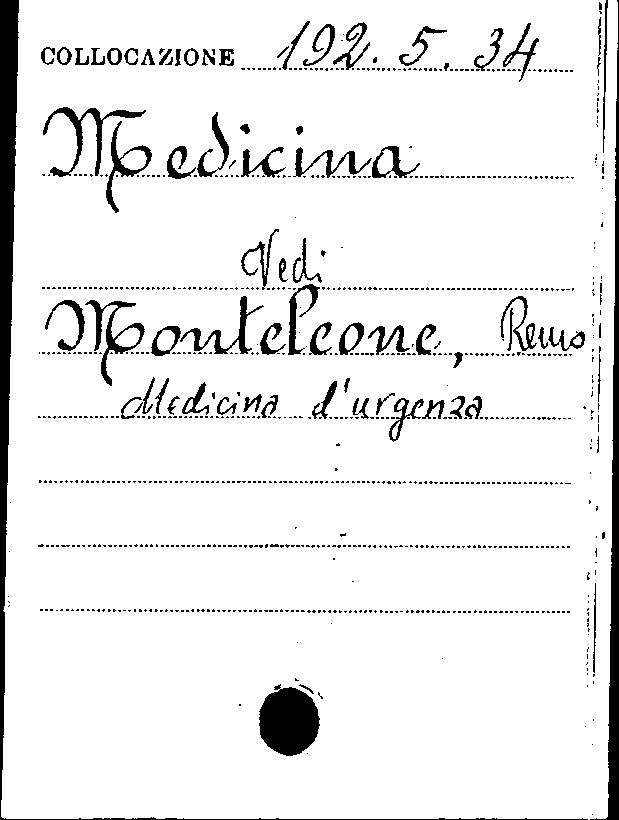 COLLOCAZIONE 192.5.34
Medicina
Vedi
Monteleone, Remo
Medicina d'urgenza